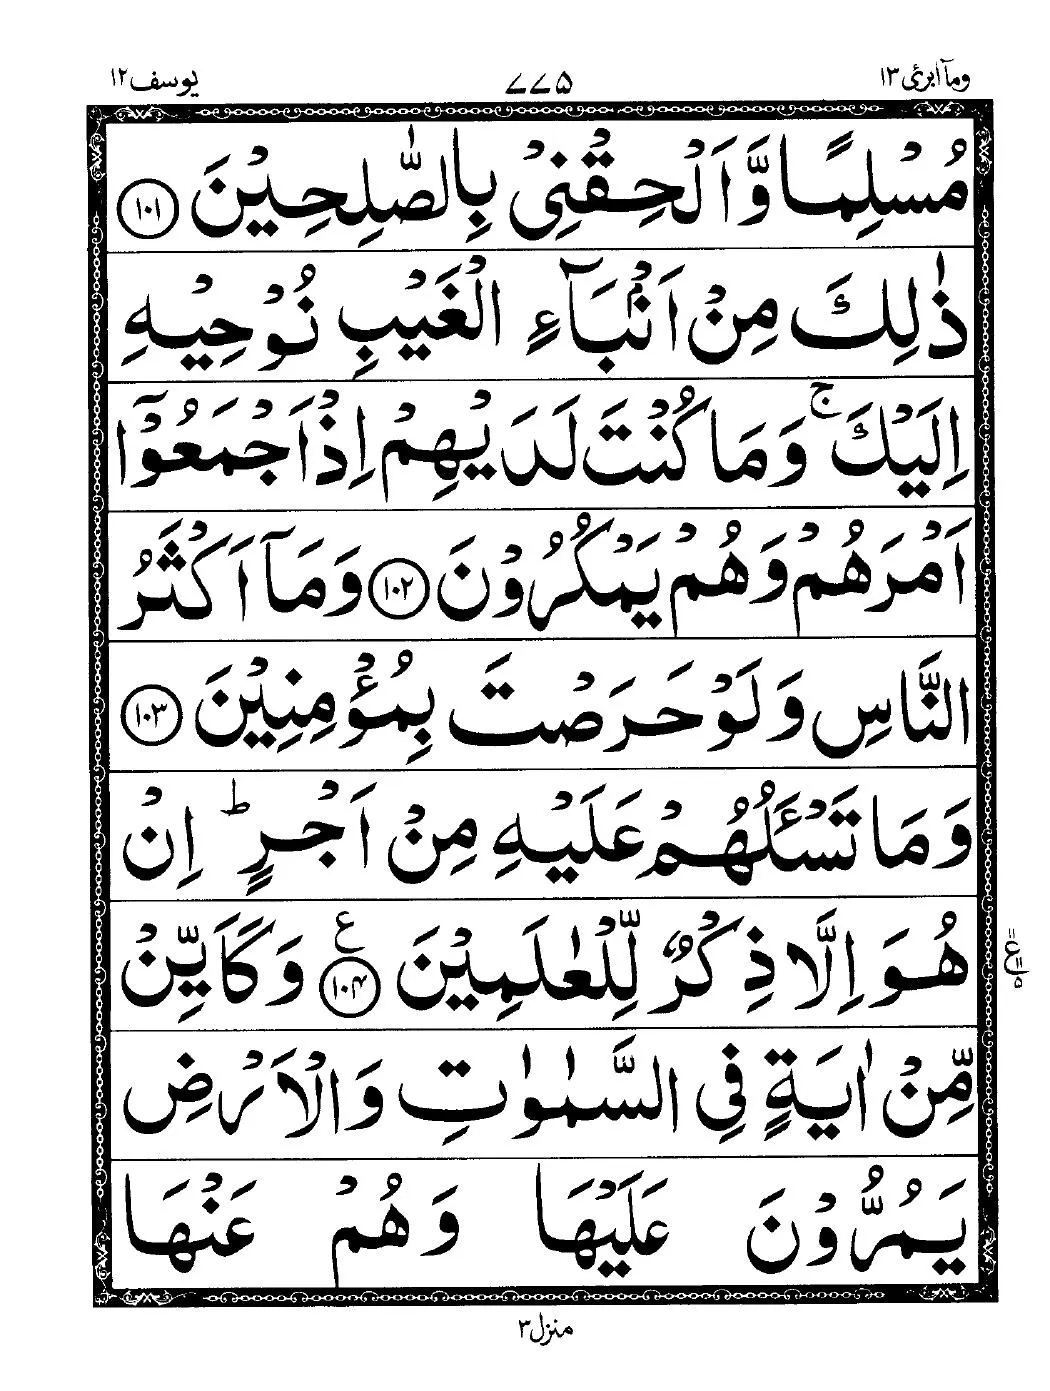 ومآ ابرئ ۱۳ ۷۷۵ یوسف ۱۲
مُسْلِمًا وَّاَلْحِقْنِیْ بِالصّٰلِحِیْنَ ﴿۱۰۱﴾
ذٰلِكَ مِنْ اَنْۢبَآءِ الْغَیْبِ نُوْحِیْهِ
اِلَیْكَ ۚ وَمَا كُنْتَ لَدَیْهِمْ اِذْ اَجْمَعُوْۤا
اَمْرَهُمْ وَهُمْ یَمْكُرُوْنَ ﴿۱۰۲﴾ وَمَاۤ اَكْثَرُ
النَّاسِ وَلَوْ حَرَصْتَ بِمُؤْمِنِیْنَ ﴿۱۰۳﴾
وَمَا تَسْـَٔلُهُمْ عَلَیْهِ مِنْ اَجْرٍ ؕ اِنْ
هُوَ اِلَّا ذِكْرٌ لِّلْعٰلَمِیْنَ ﴿۱۰۴﴾ ع وَكَاَیِّنْ
مِّنْ اٰیَةٍ فِی السَّمٰوٰتِ وَالْاَرْضِ
یَمُرُّوْنَ عَلَیْهَا وَهُمْ عَنْهَا
منزل ۳